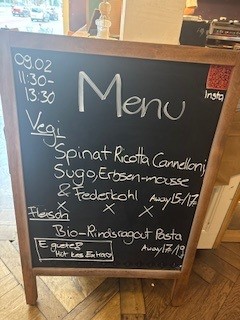 09.02
11:30-
13:30
Menu
Insta
Vegi
Spinat Ricotta Cannelloni
Sugo, Erbsen-mousse
& Federkohl Away 15/17.-
x x x
Fleisch
Bio-Rindsragout Pasta
Away 17/19
E guete &
Het kes Extra's